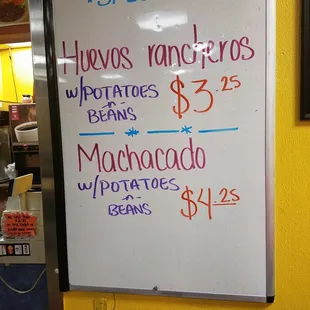 Huevos rancheros
w/POTATOES
-n-
BEANS
$3.25
Machacado
w/POTATOES
-n-
BEANS
$4.25